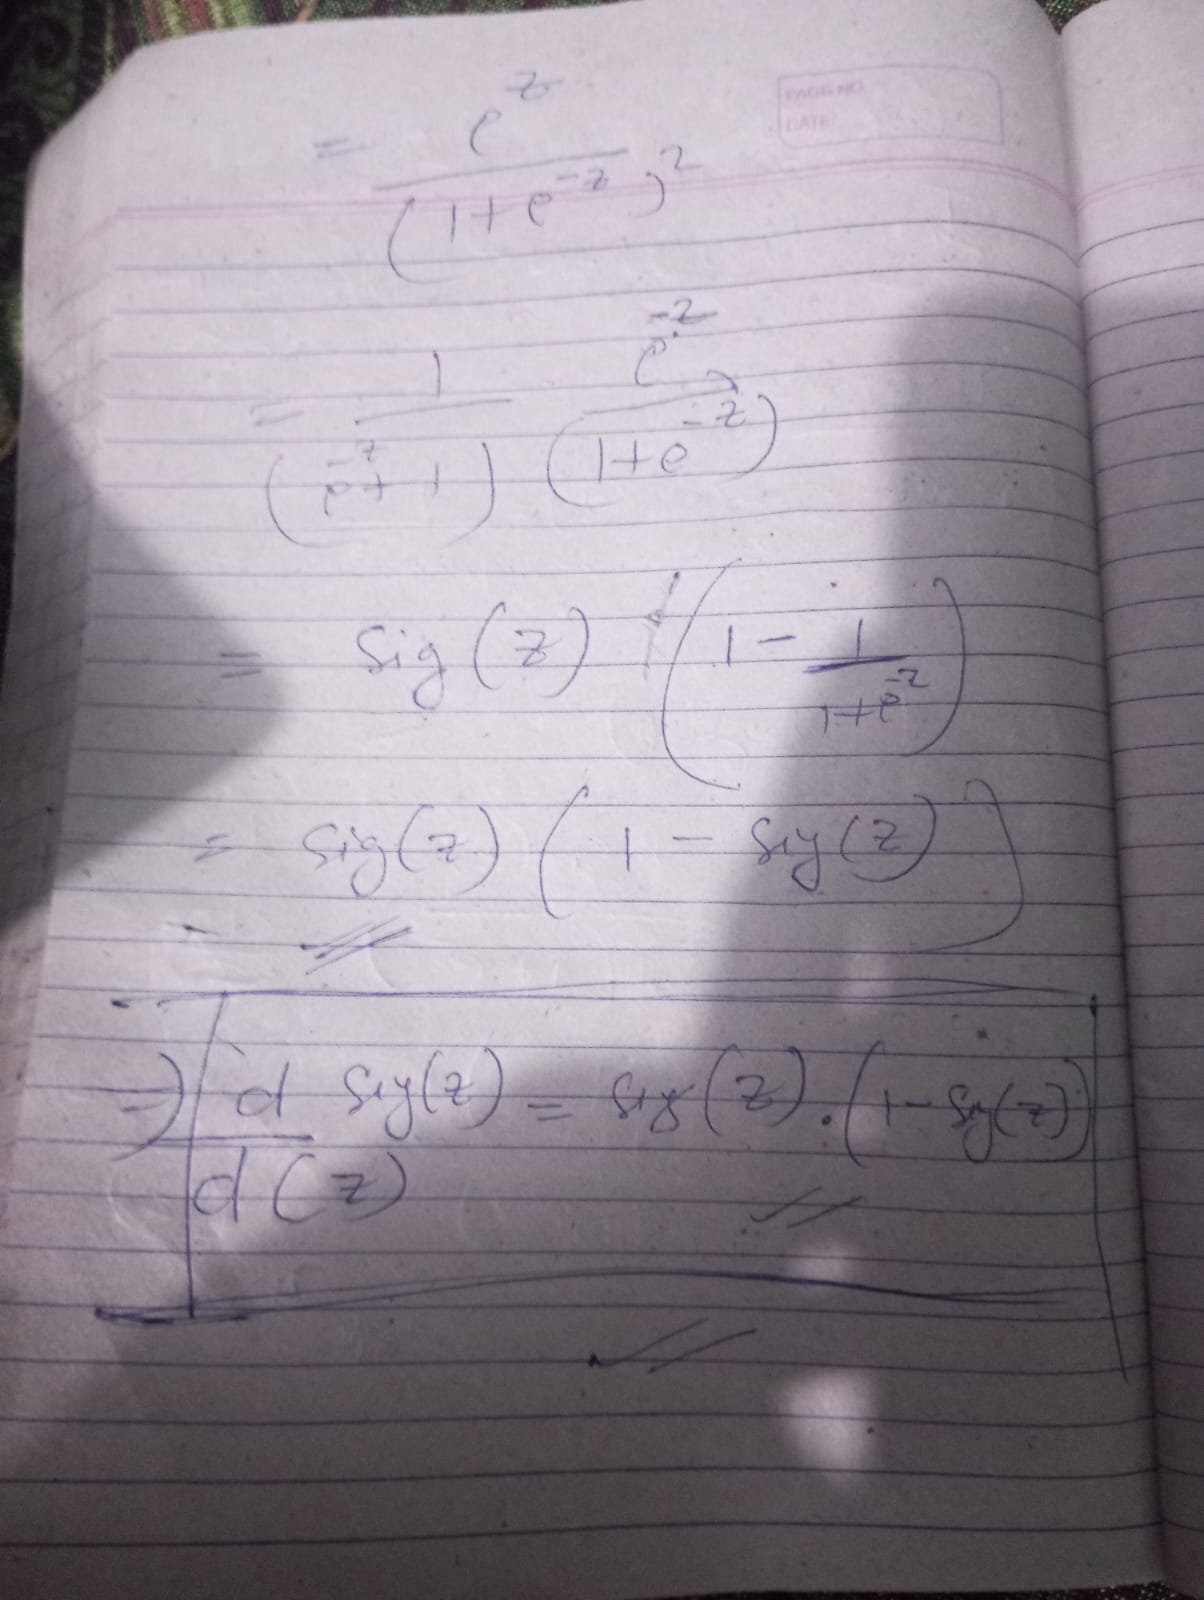 PAGE NO.
DATE:
= e^z / (1+e^-z)^2
= 1/(e^-z + 1) e^-z/(1+e^-z)
= Sig(z) (1 - 1/(1+e^-z))
= Sig(z) (1 - Sig(z))
⇒ d/d(z) Sig(z) = Sig(z) . (1 - Sig(z))